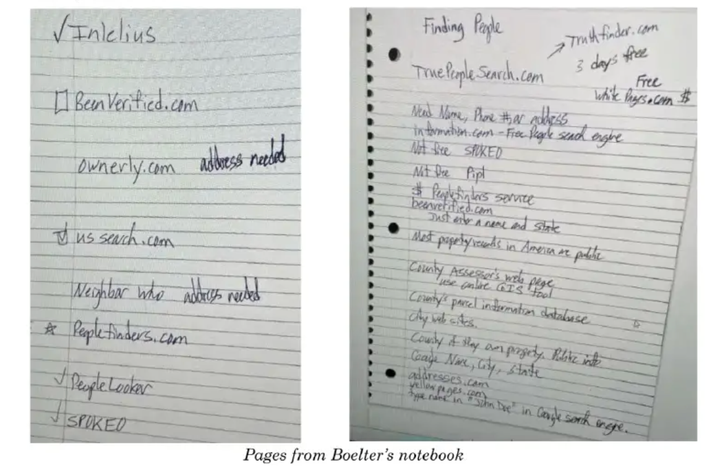 ✓ Intelius
☐ BeenVerified.com
ownerly.com address needed
☑ us search.com
Neighbor who address needed
☆ Peoplefinders.com
✓ PeopleLooker
✓ SPOKEO
Finding People
→ Truthfinder.com
3 days free
TruePeopleSearch.com
Free
White Pages.com $
Need Name, Phone #, or address
Information.com - Free People search engine
Not free SPOKEO
Not free Pipl
$ Peoplefinders service
beenverified.com
Just enter a name and state
Most property records in America are public
County Assessor's web page
use online GIS tool
County's parcel information database
City web sites.
County if they own property. Public info
Google Name, City, State
addresses.com
yellowpages.com
type name in "John Doe" in Google search engine.
Pages from Boelter's notebook